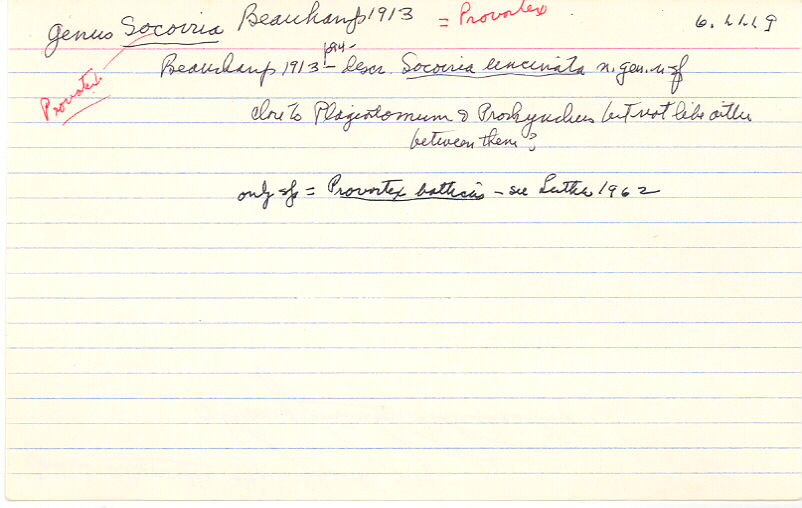 Genus Socorria Beauchamp 1913 = Provortex 6.11.19
Provortex
Beauchamp 1913 p94 - Descr. Socorria uncinata n. gen. n. sp
close to Plagiostomum & Prorhynchus but not like either
between them?
only sp = Provortex balticus - see Luther 1962